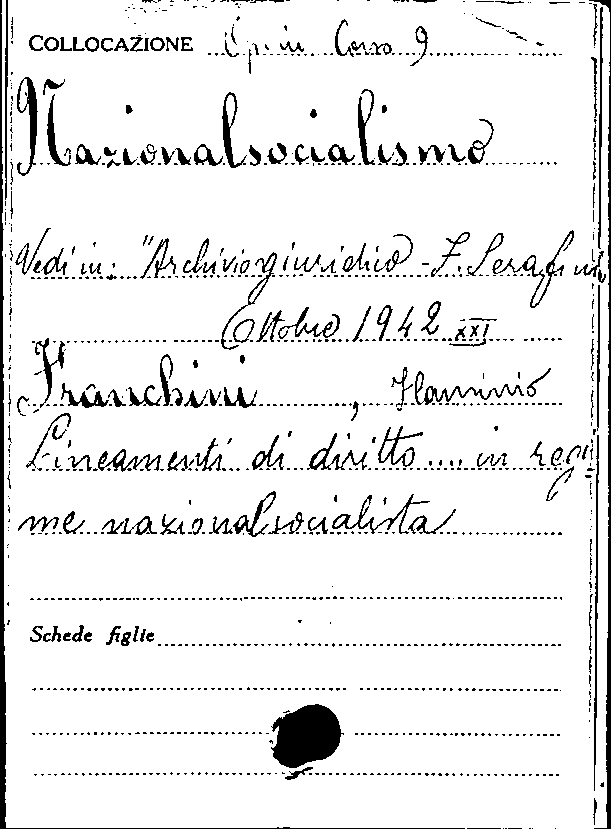 COLLOCAZIONE Op. in Corso 9
Nazionalsocialismo
Vedi in: "Archivio giuridico - F. Serafini
Ottobre 1942 XXI
Franchini, Flaminio
Lineamenti di diritto .... in regi
me nazionalsocialista
Schede figlie